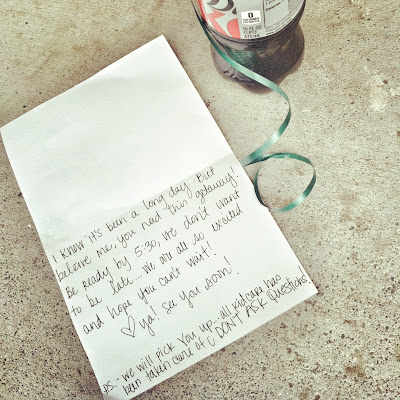 I know it's been a long day. But
believe me, you need this getaway!
Be ready by 5:30, we don't want
to be late... we are all so excited
and hope you can't wait!
♡ ya! See you soon!
PS.- we will pick you up - all kid care has
been taken care of DON'T ASK Questions!